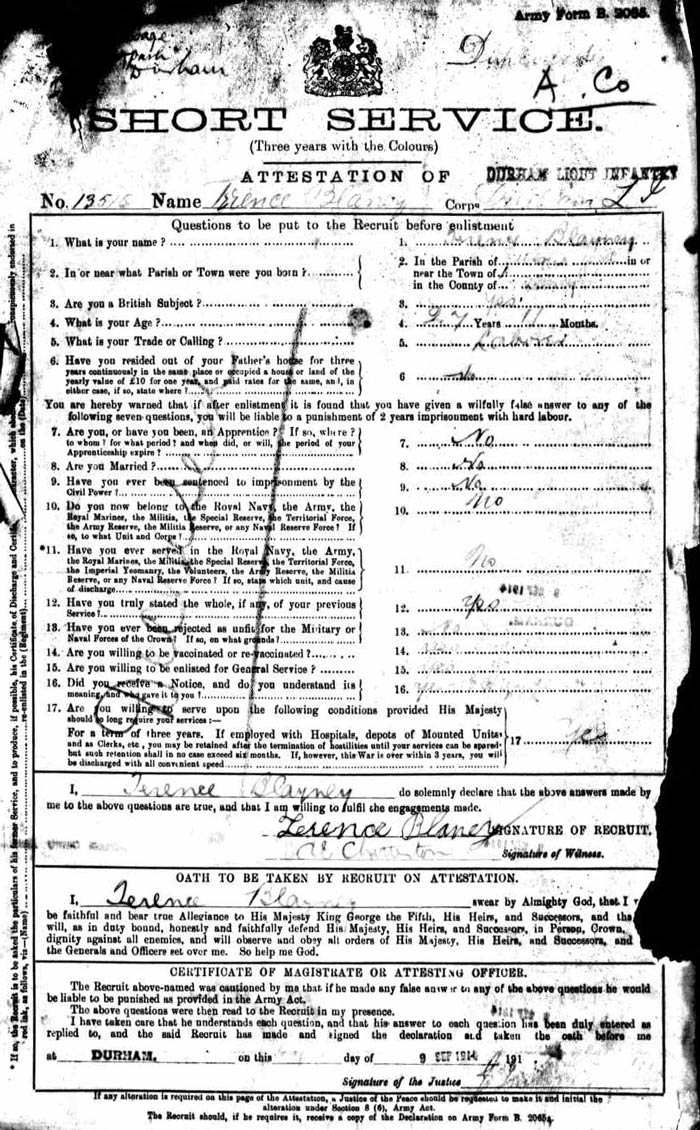 Army Form B. 2065.
Durham
A. Co
SHORT SERVICE.
(Three years with the Colours)
ATTESTATION OF
DURHAM LIGHT INFANTRY
No. Name Terence Blaney Corps L I
Questions to be put to the Recruit before enlistment
1. What is your name ? 1. Terence Blayney
2. In or near what Parish or Town were you born ? 2. In the Parish of in or
near the Town of
in the County of
3. Are you a British Subject ? 3. Yes.
4. What is your Age ? 4. 27 Years 11 Months.
5. What is your Trade or Calling ? 5. Labourer
6. Have you resided out of your Father's house for three
years continuously in the same place or occupied a house or land of the
yearly value of £10 for one year, and paid rates for the same, and, in
either case, if so, state where ? 6 No
You are hereby warned that if after enlistment it is found that you have given a wilfully false answer to any of the
following seven questions, you will be liable to a punishment of 2 years imprisonment with hard labour.
7. Are you, or have you been, an Apprentice ? If so, where ?
to whom ? for what period ? and when did, or will, the period of your
Apprenticeship expire ? 7. No
8. Are you Married ? 8. No
9. Have you ever been sentenced to imprisonment by the
Civil Power ? 9. No
10. Do you now belong to the Royal Navy, the Army, the
Royal Marines, the Militia, the Special Reserve, the Territorial Force,
the Army Reserve, the Militia Reserve, or any Naval Reserve Force ? If
so, to what Unit and Corps ? 10. No
*11. Have you ever served in the Royal Navy, the Army,
the Royal Marines, the Militia, the Special Reserve, the Territorial Force,
the Imperial Yeomanry, the Volunteers, the Army Reserve, the Militia
Reserve, or any Naval Reserve Force ? If so, state which unit, and cause
of discharge 11. No
12. Have you truly stated the whole, if any, of your previous
Service ? 12. Yes
13. Have you ever been rejected as unfit for the Military or
Naval Forces of the Crown ? If so, on what grounds ? 13. No
14. Are you willing to be vaccinated or re-vaccinated ? 14.
15. Are you willing to be enlisted for General Service ? 15. Yes
16. Did you receive a Notice, and do you understand its
meaning, and who gave it to you ? 16.
17. Are you willing to serve upon the following conditions provided His Majesty
should so long require your services :—
For a term of three years. If employed with Hospitals, depots of Mounted Units
and as Clerks, etc., you may be retained after the termination of hostilities until your services can be spared
but such retention shall in no case exceed six months. If, however, this War is over within 3 years, you will
be discharged with all convenient speed 17 Yes
I, Terence Blayney do solemnly declare that the above answers made by
me to the above questions are true, and that I am willing to fulfil the engagements made.
Terence Blaney SIGNATURE OF RECRUIT.
Signature of Witness.
OATH TO BE TAKEN BY RECRUIT ON ATTESTATION.
I, Terence Blayney swear by Almighty God, that I
be faithful and bear true Allegiance to His Majesty King George the Fifth, His Heirs, and Successors, and tha
will, as in duty bound, honestly and faithfully defend His Majesty, His Heirs, and Successors, in Person, Crown,
dignity against all enemies, and will observe and obey all orders of His Majesty, His Heirs, and Successors, and
the Generals and Officers set over me. So help me God.
CERTIFICATE OF MAGISTRATE OR ATTESTING OFFICER.
The Recruit above-named was cautioned by me that if he made any false answer to any of the above questions he would
be liable to be punished as provided in the Army Act.
The above questions were then read to the Recruit in my presence.
I have taken care that he understands each question, and that his answer to each question has been duly entered as
replied to, and the said Recruit has made and signed the declaration and taken the oath before me
at DURHAM. on this day of 9 SEP 1914 191
Signature of the Justice
If any alteration is required on this page of the Attestation, a Justice of the Peace should be requested to make it and initial the
alteration under Section 8 (6), Army Act.
The Recruit should, if he requires it, receive a copy of the Declaration on Army Form B. 2065A.
* If so, the Recruit is to be asked the particulars of his former Service, and to produce, if possible, his Certificate of Discharge and Certificate of Character, which should be conspicuously endorsed in
red ink, as follows, viz.—(Name) re-enlisted in the (Regiment) on the (Date)